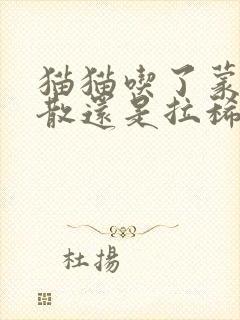 猫猫喫了蒙
散還是拉稀
杜揚